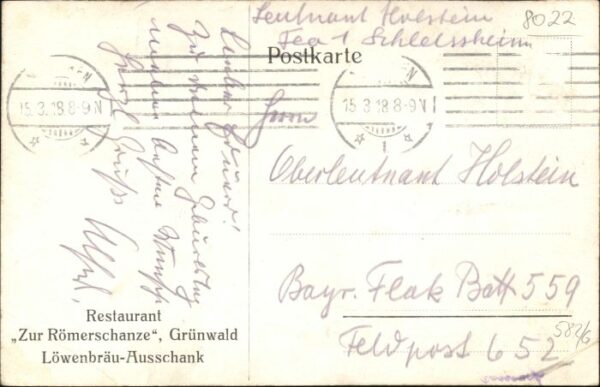 Leutnant Holstein
Fea 1 Schleissheim
8022
Postkarte
15.3.18.8-9N
15.3.18.8-9N
1
Herrn
Oberleutnant Holstein
Bayr. Flak Batt 559
Feldpost 652
582/6
Lieber
Zu deinem Geburtstag
meine besten
Herzl. Grüße
Restaurant
„Zur Römerschanze“, Grünwald
Löwenbräu-Ausschank